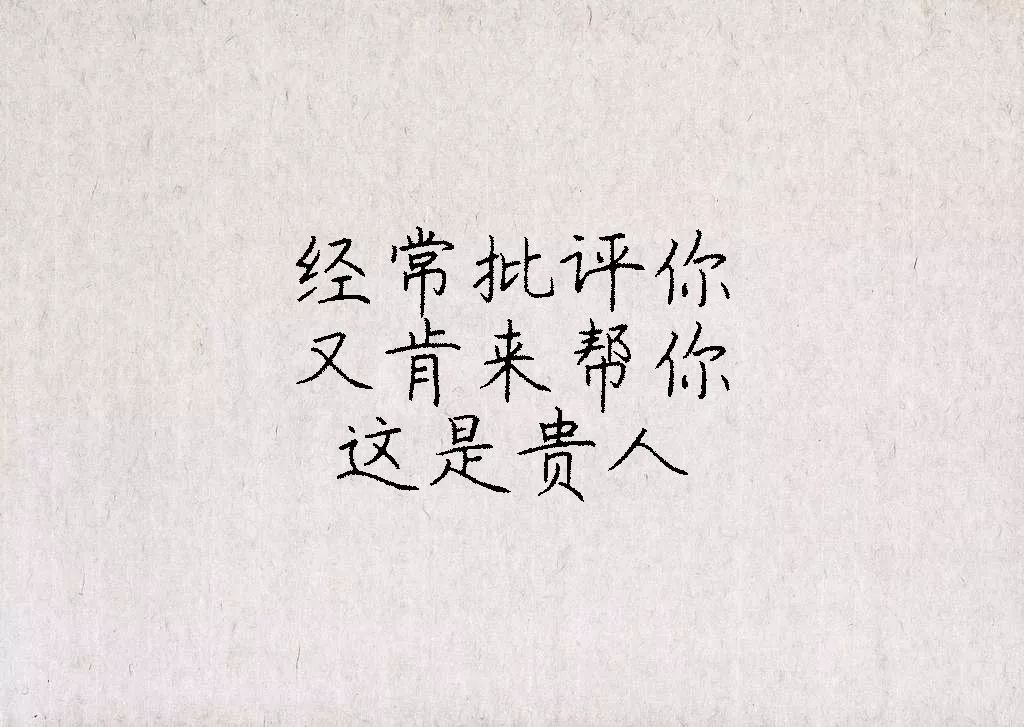 经常批评你
又肯来帮你
这是贵人